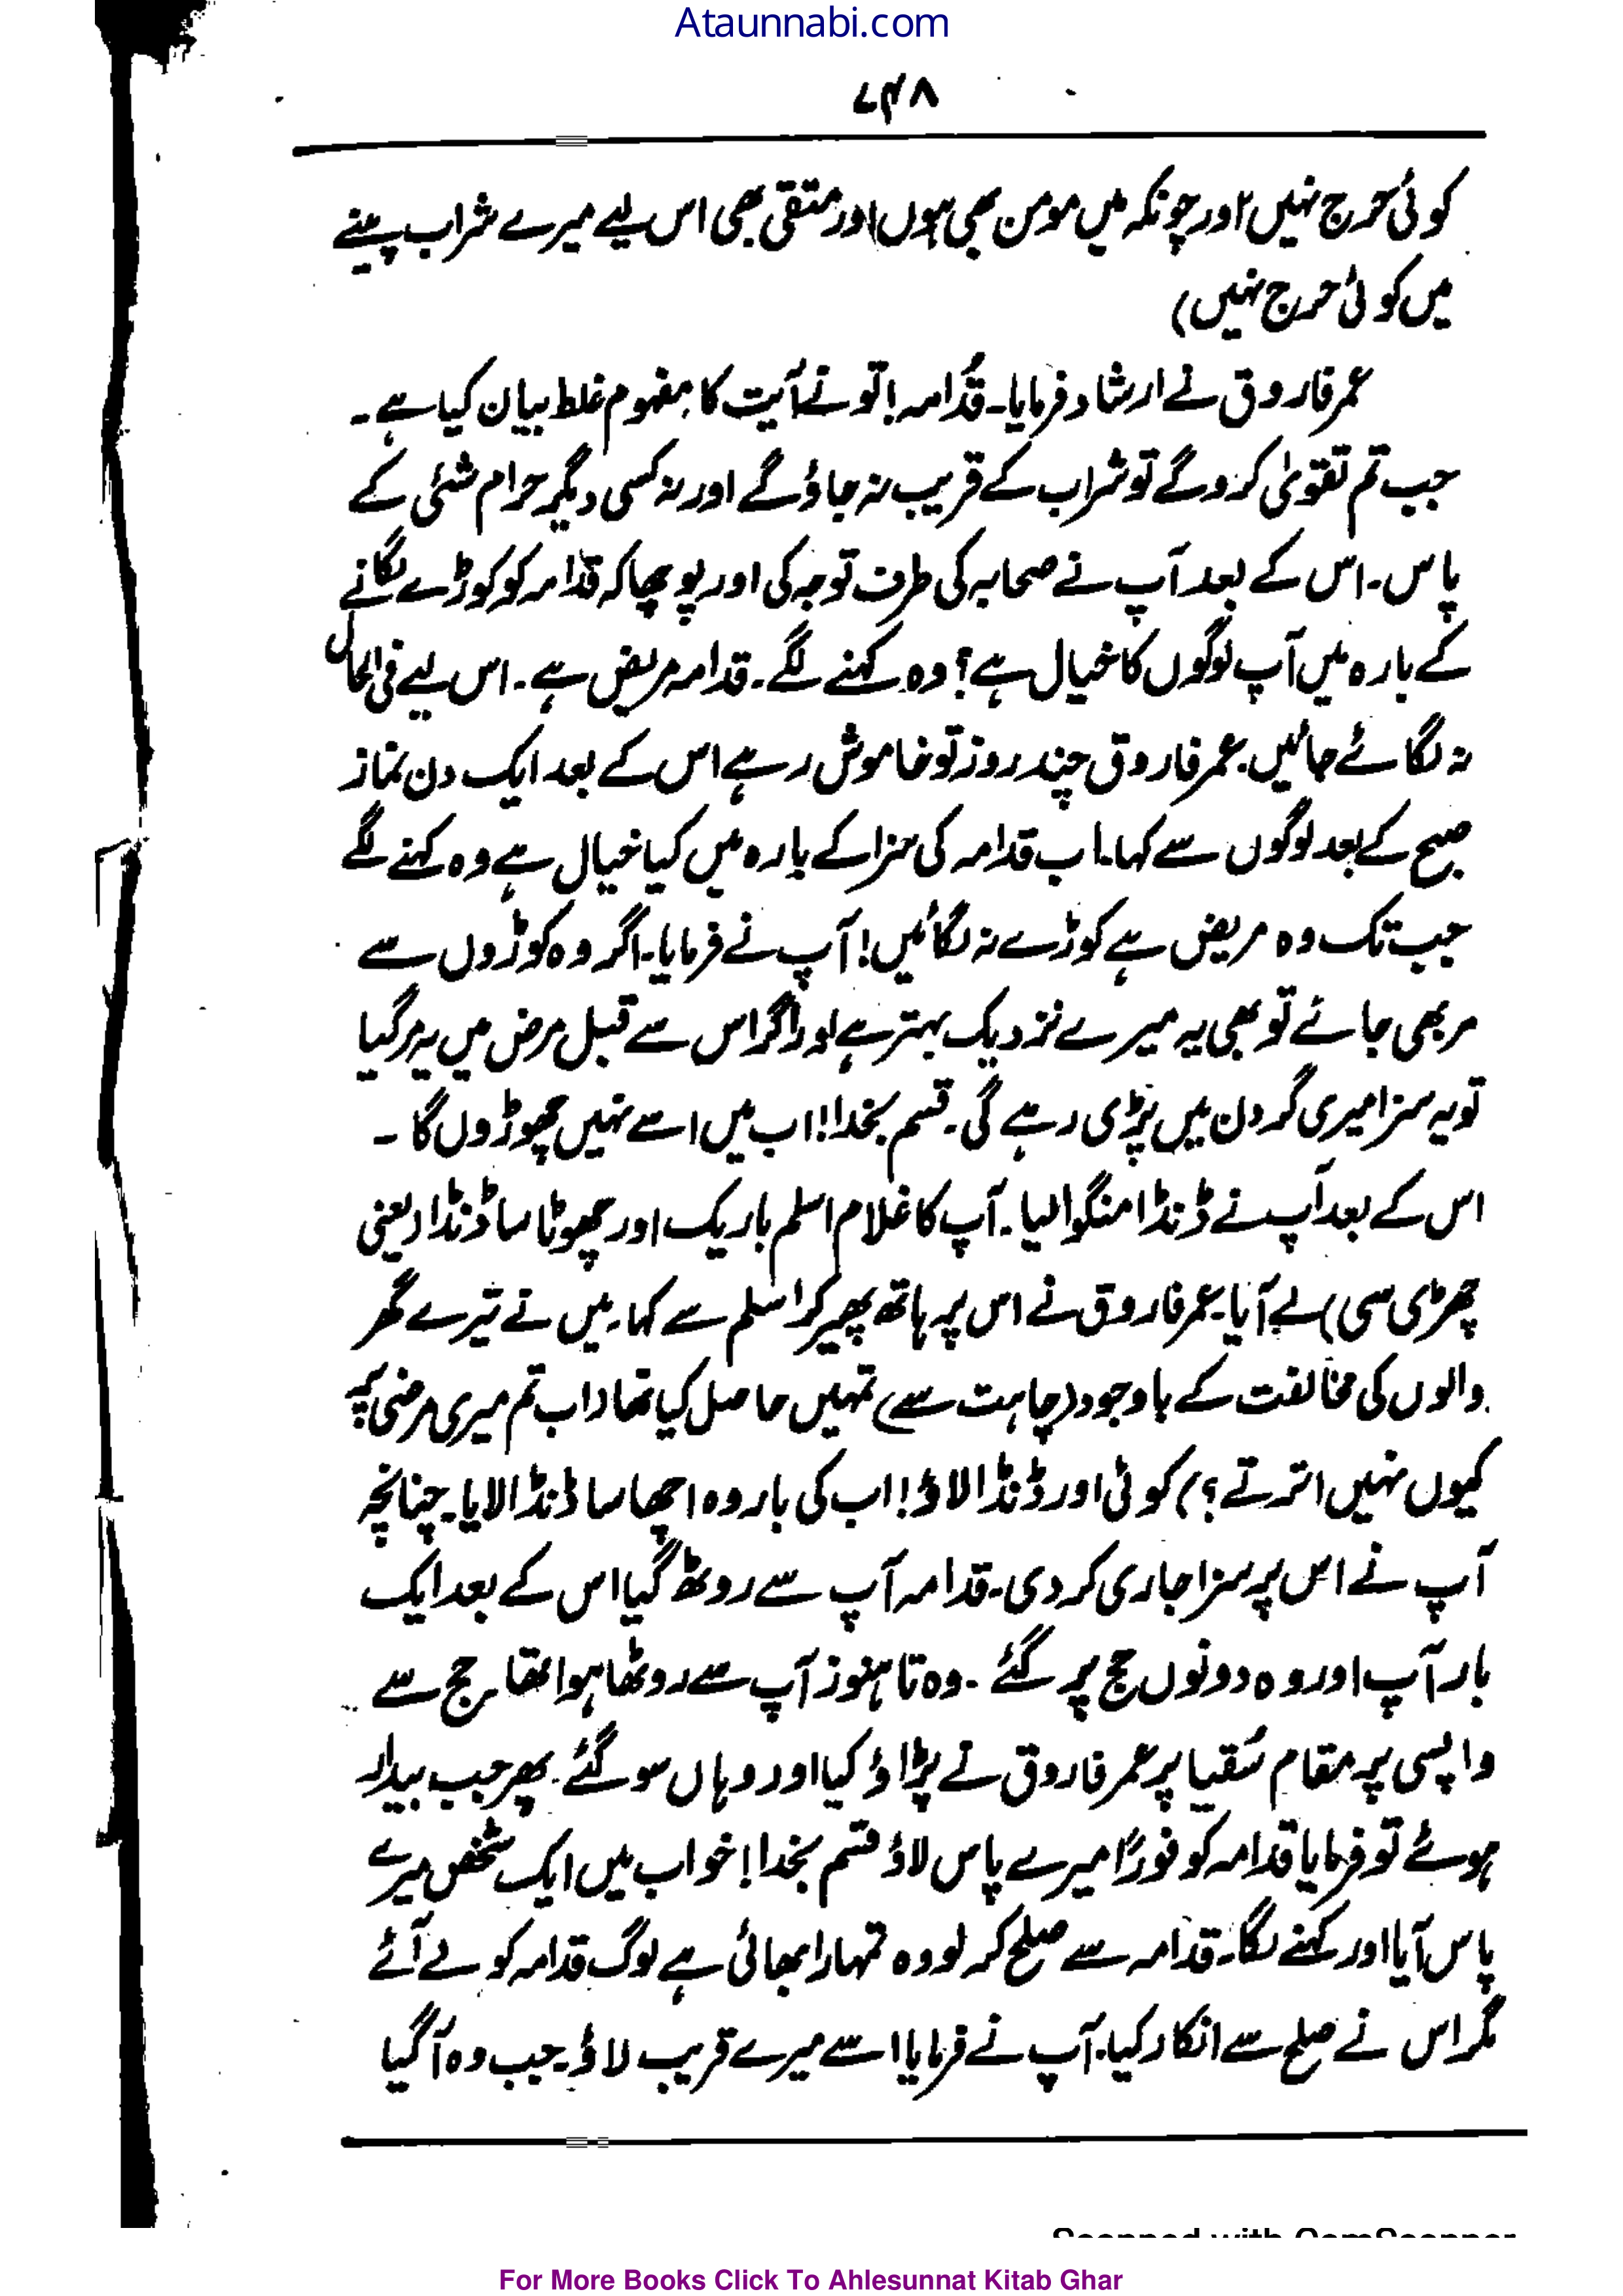 Ataunnabi.com
۷۴۸
کوئی حرج نہیں ۲ اور چونکہ میں مومن بھی ہوں اور متقی بھی اس لیے میرے شراب پینے
میں کوئی حرج نہیں)
عمر فاروق نے ارشاد فرمایا۔ قُدامہ! تو نے آیت کا مفہوم غلط بیان کیا ہے۔
جب تم تقویٰ کرو گے تو شراب کے قریب نہ جاؤ گے اور نہ کسی دیگر حرام شئی کے
پاس۔ اس کے بعد آپ نے صحابہ کی طرف توجہ کی اور پوچھا کہ قدامہ کو کوڑے لگانے
کے بارہ میں آپ لوگوں کا خیال ہے؟ وہ کہنے لگے۔ قدامہ مریض ہے۔ اس لیے فی الحال
نہ لگائے جائیں۔ عمر فاروق چند روز تو خاموش رہے اس کے بعد ایک دن نماز
صبح کے بعد لوگوں سے کہا۔ اب قدامہ کی سزا کے بارہ میں کیا خیال ہے وہ کہنے لگے
جب تک وہ مریض ہے کوڑے نہ لگائیں! آپ نے فرمایا۔ اگر وہ کوڑوں سے
مر بھی جائے تو بھی یہ میرے نزدیک بہتر ہے اور اگر اس سے قبل مرض میں یہ مر گیا
تو یہ سزا میری گردن میں پڑی رہے گی۔ قسم بخدا! اب میں اسے نہیں چھوڑوں گا۔
اس کے بعد آپ نے ڈنڈا منگوا لیا۔ آپ کا غلام اسلم باریک اور چھوٹا سا ڈنڈا (یعنی
چھڑی سی) لے آیا۔ عمر فاروق نے اس پر ہاتھ پھیر کر اسلم سے کہا۔ میں نے تیرے گھر
والوں کی مخالفت کے باوجود (چاہت سے) تمہیں حاصل کیا تھا (اب تم میری مرضی پہ
کیوں نہیں اترتے؟) کوئی اور ڈنڈا لاؤ! اب کی بار وہ اچھا سا ڈنڈا لایا۔ چنانچہ
آپ نے اس پر سزا جاری کر دی۔ قدامہ آپ سے روٹھ گیا اس کے بعد ایک
بار آپ اور وہ دونوں حج پر گئے۔ وہ تا ہنوز آپ سے روٹھا ہوا تھا۔ حج سے
واپسی پر مقام سُقیا پر عمر فاروق نے پڑاؤ کیا اور وہاں سو گئے۔ پھر جب بیدار
ہوئے تو فرمایا قدامہ کو فورًا میرے پاس لاؤ قسم بخدا! خواب میں ایک شخص میرے
پاس آیا اور کہنے لگا۔ قدامہ سے صلح کر لو وہ تمہارا بھائی ہے لوگ قدامہ کو لے آئے
مگر اس نے صلح سے انکار کیا۔ آپ نے فرمایا اسے میرے قریب لاؤ۔ جب وہ آ گیا
Scanned with CamScanner
For More Books Click To Ahlesunnat Kitab Ghar